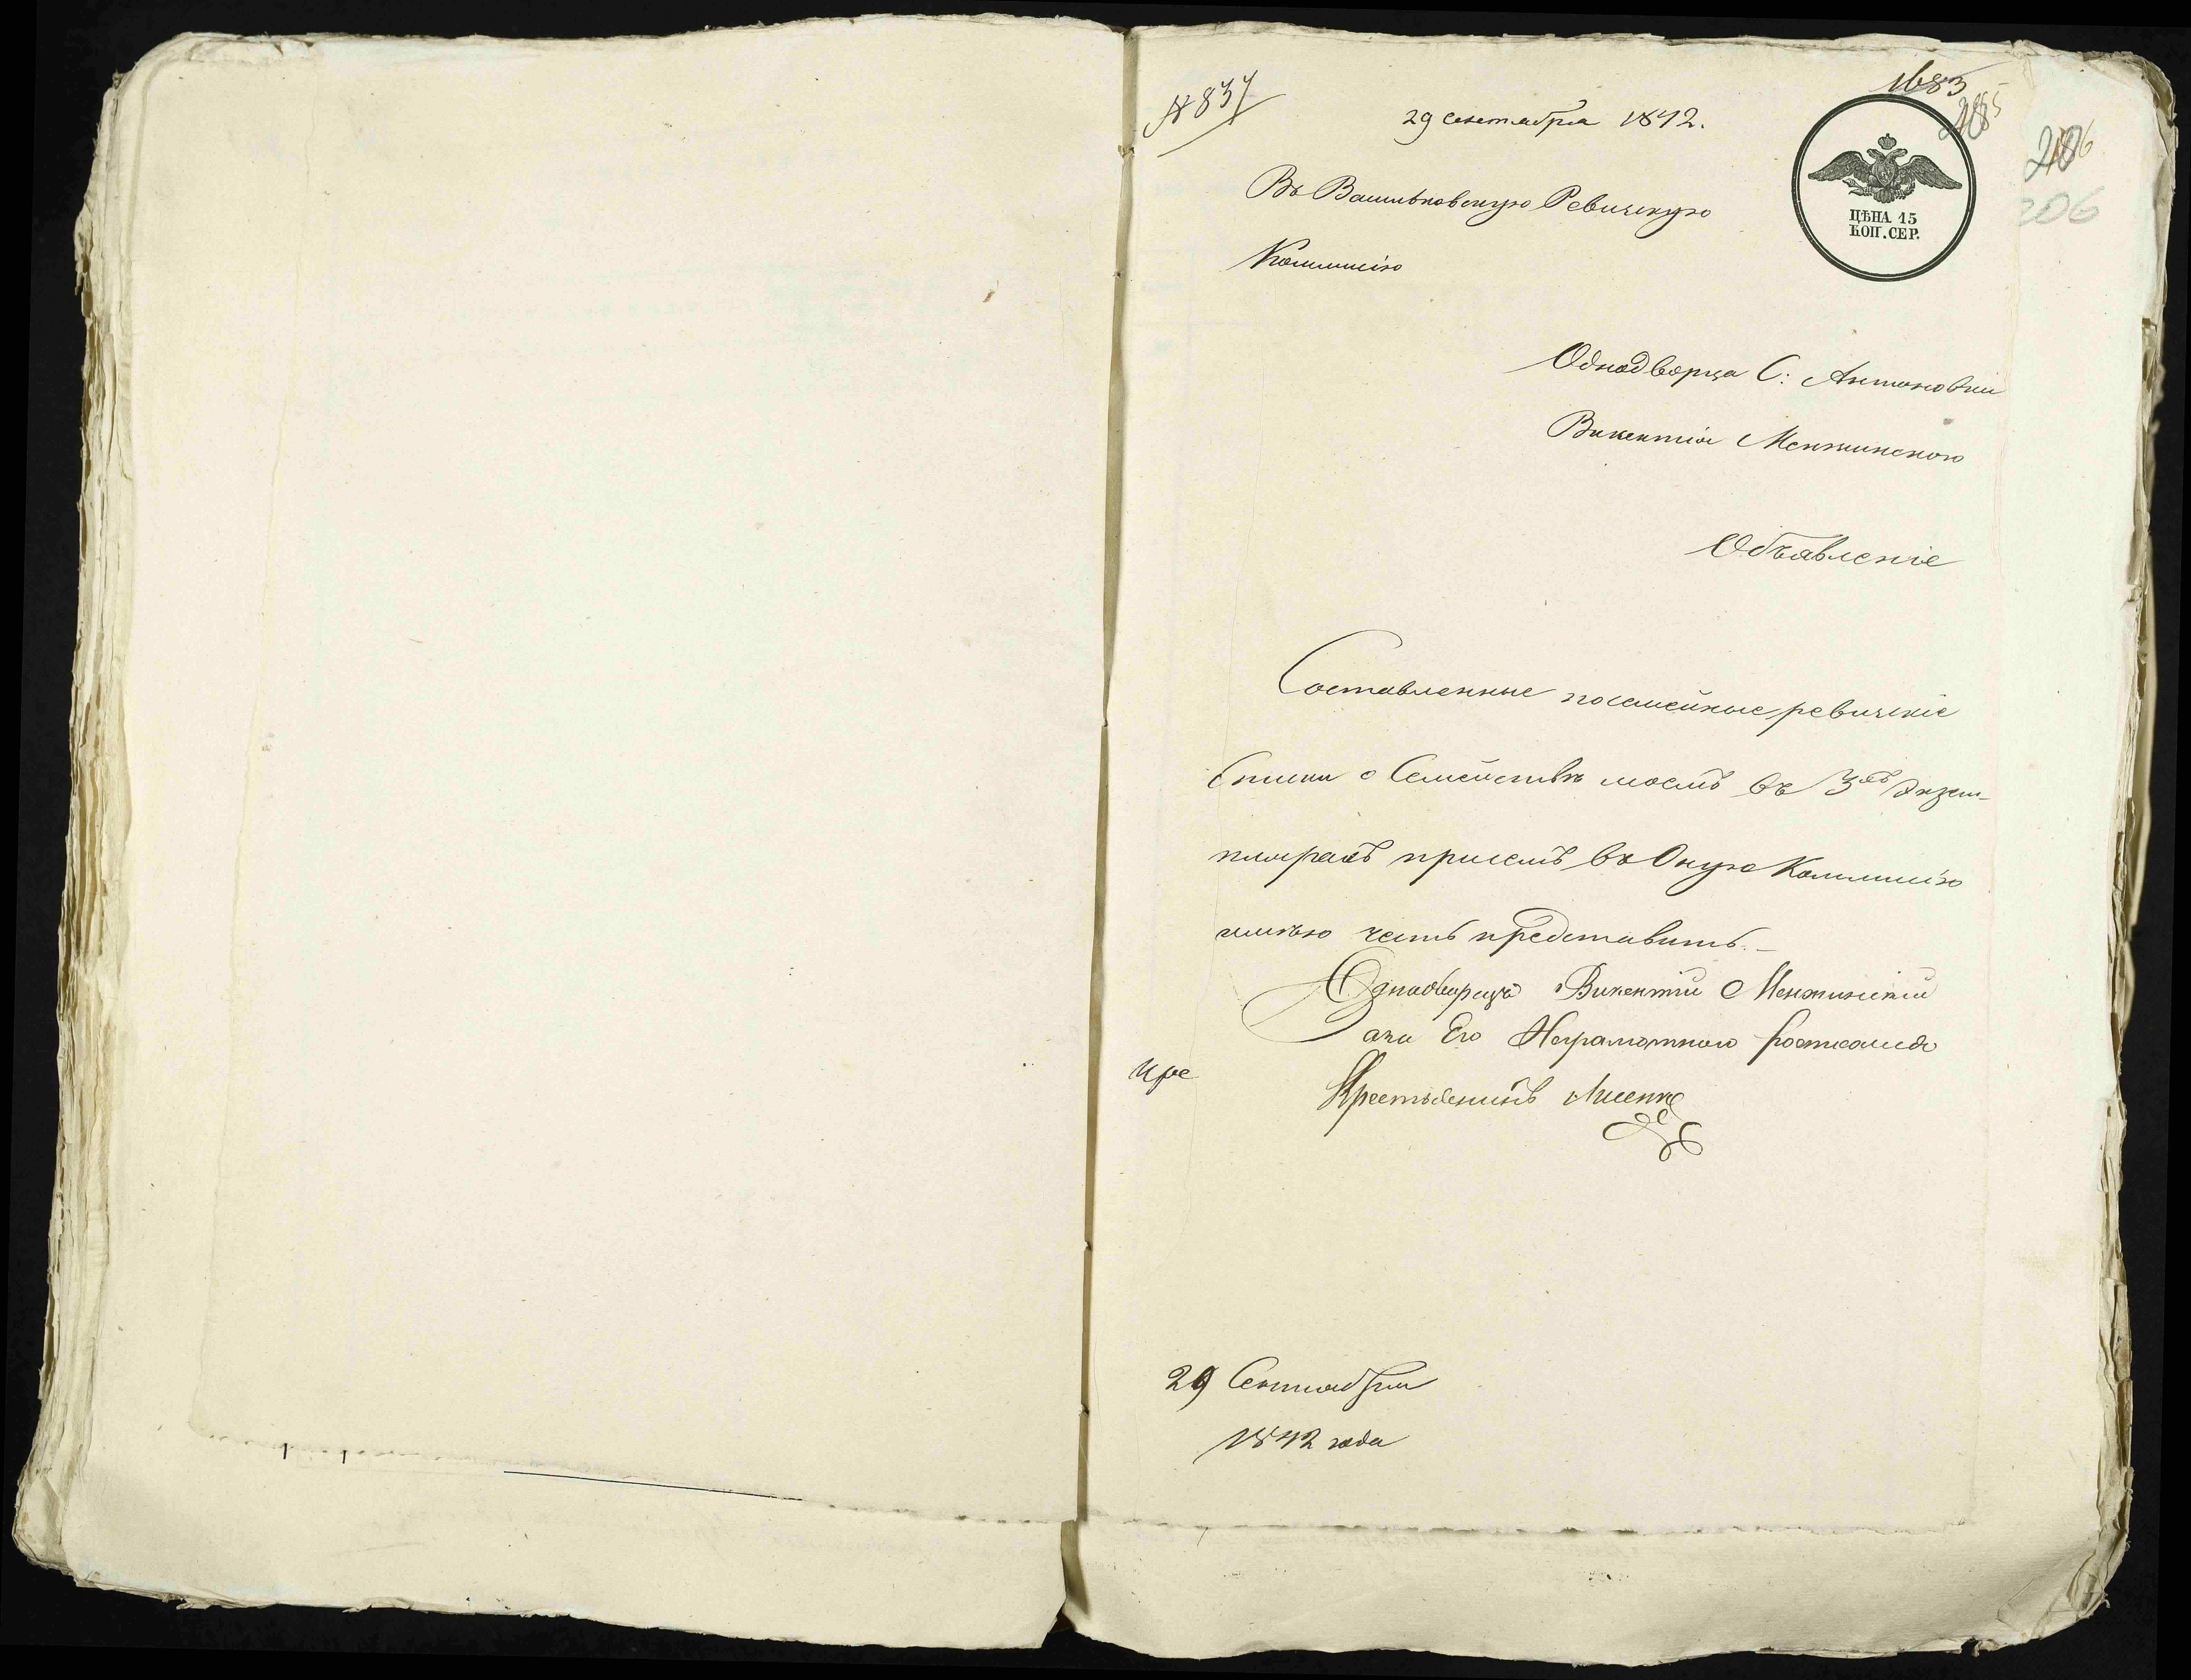 № 837
1683
29 Сентября 1842.
285
206
206
ЦѢНА 15
КОП. СЕР.
Въ Васильковскую Ревизскую
Коммисію
Однодворца С: Антоновки
Викентія Менжинского
Объявленіе
Составленные посемейные ревизскіе
Списки о Семействѣ моемъ въ 3хъ Экзем-
плярахъ присемъ въ Оную Коммисію
имѣю честь представить.-
Однодворецъ Викентій Менжинскій
а за Его Неграмотного Росписался
Крестьянинъ Лисенко
29 Сентября
1842 года